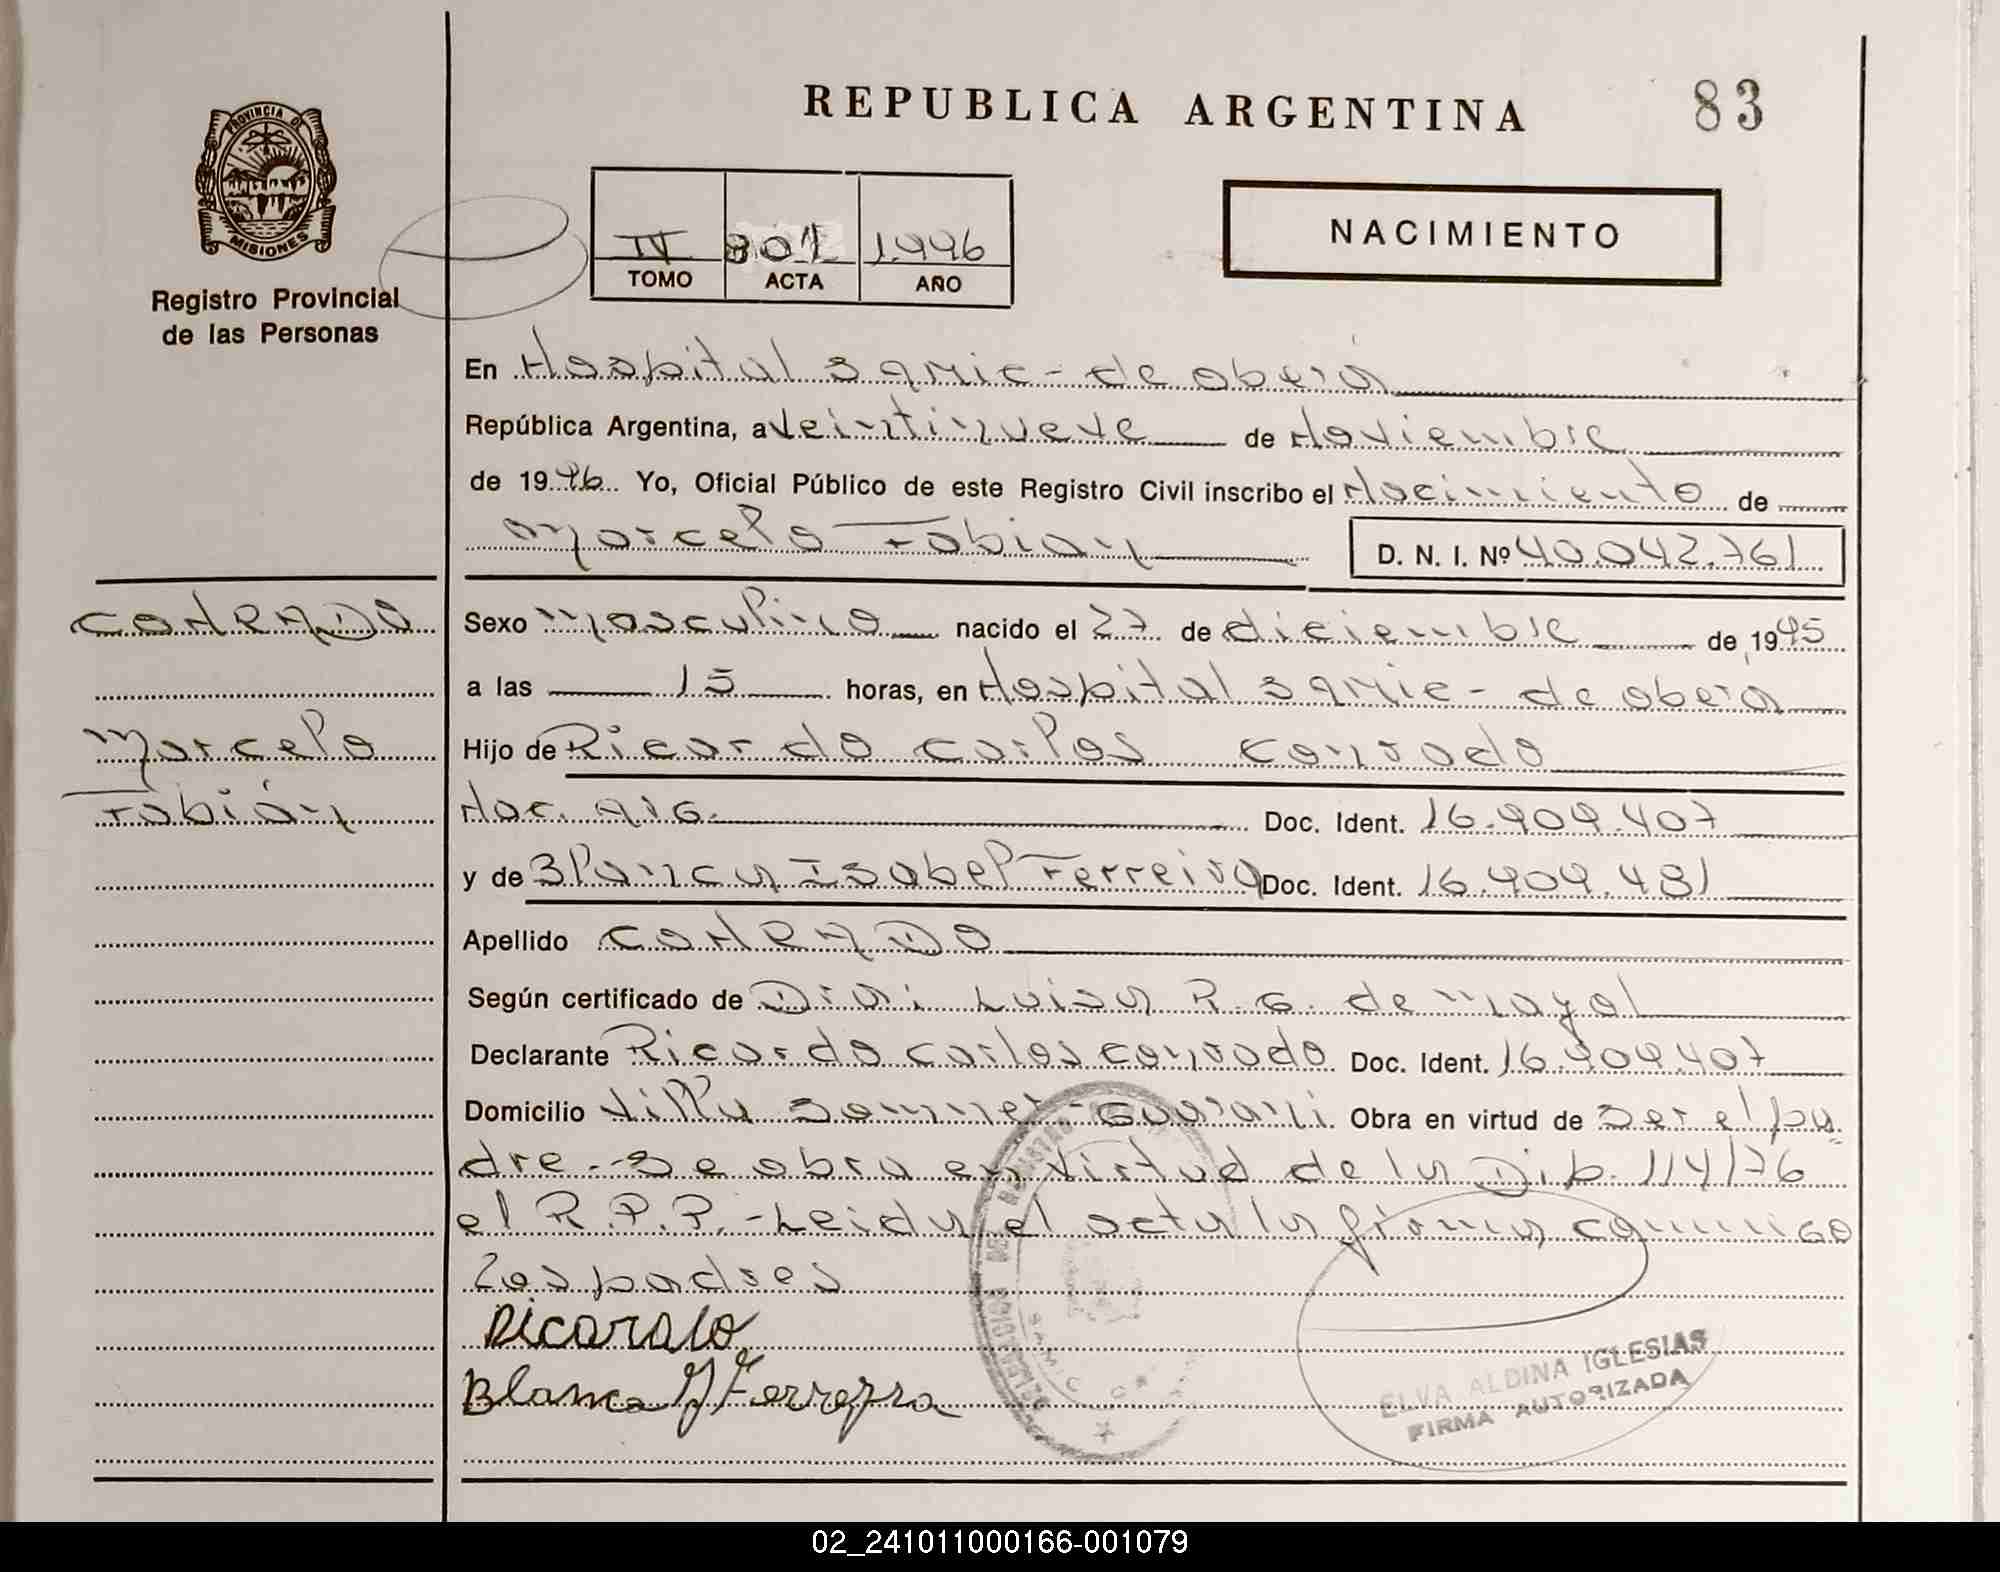 REPUBLICA ARGENTINA
83
PROVINCIA DE
MISIONES
Registro Provincial
de las Personas
IV 801 1.996
TOMO ACTA AÑO
NACIMIENTO
En Hospital Samic - de oberá
República Argentina, a Veintinueve de Noviembre
de 1996 Yo, Oficial Público de este Registro Civil inscribo el Nacimiento de
Marcelo Fabian
D. N. I. Nº 40.042.761
CONRADO
Marcelo
Fabián
Sexo Masculino nacido el 27 de diciembre de 1995
a las 15 horas, en Hospital Samic - de obera
Hijo de Ricardo Carlos Conrado
Nac. Arg. Doc. Ident. 16.909.407
y de Blanca Isabel Ferreira Doc. Ident. 16.909.481
Apellido CONRADO
Según certificado de Dra: Luisa R. G. de Mayol
Declarante Ricardo Carlos Conrado Doc. Ident. 16.909.407
Domicilio Villa Sommer - Guarani. Obra en virtud de ser el pa
dre.-Se obra en virtud de la Dip. 114/76
el R.P.P.-Leida el acta la firma conmigo
Los padres
Ricardo
Blanca Y Ferreyra
ELVA ALDINA IGLESIAS
FIRMA AUTORIZADA
02_241011000166-001079